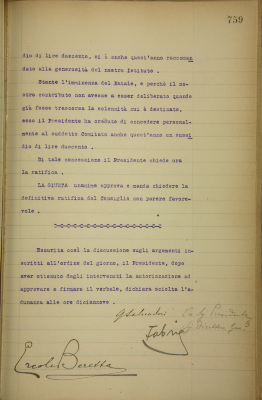 759
dio di lire duecento, si è anche quest'anno raccoman
dato alla generosità del nostro Istituto .
Stante l'imminenza del Natale, e perchè il no=
stro contributo non avesse a esser deliberato quando
già fosse trascorsa la solennità cui è destinato,
esso il Presidente ha creduto di concedere personal=
mente al suddetto Comitato anche quest'anno un sussi
dio di lire duecento .
Di tale concessione il Presidente chiede ora
la ratifica .
LA GIUNTA unanime approva e manda chiedere la
definitiva ratifica del Consiglio con parere favore=
vole .
Esaurita così la discussione sugli argomenti in=
scritti all'ordine del giorno, il Presidente, dopo
aver ottenuto dagli intervenuti la autorizzazione ad
approvare e firmare il verbale, dichiara sciolta l'a=
dunanza alle ore diciannove .
Ercole Beretta